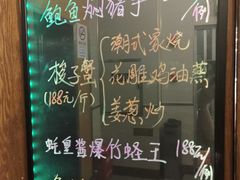 鲍鱼焖猪手 例
潮式家烧
梭子蟹 花雕鸡油蒸
(188元/斤)
姜葱焗
蚝皇酱爆竹蛏王 188元/例